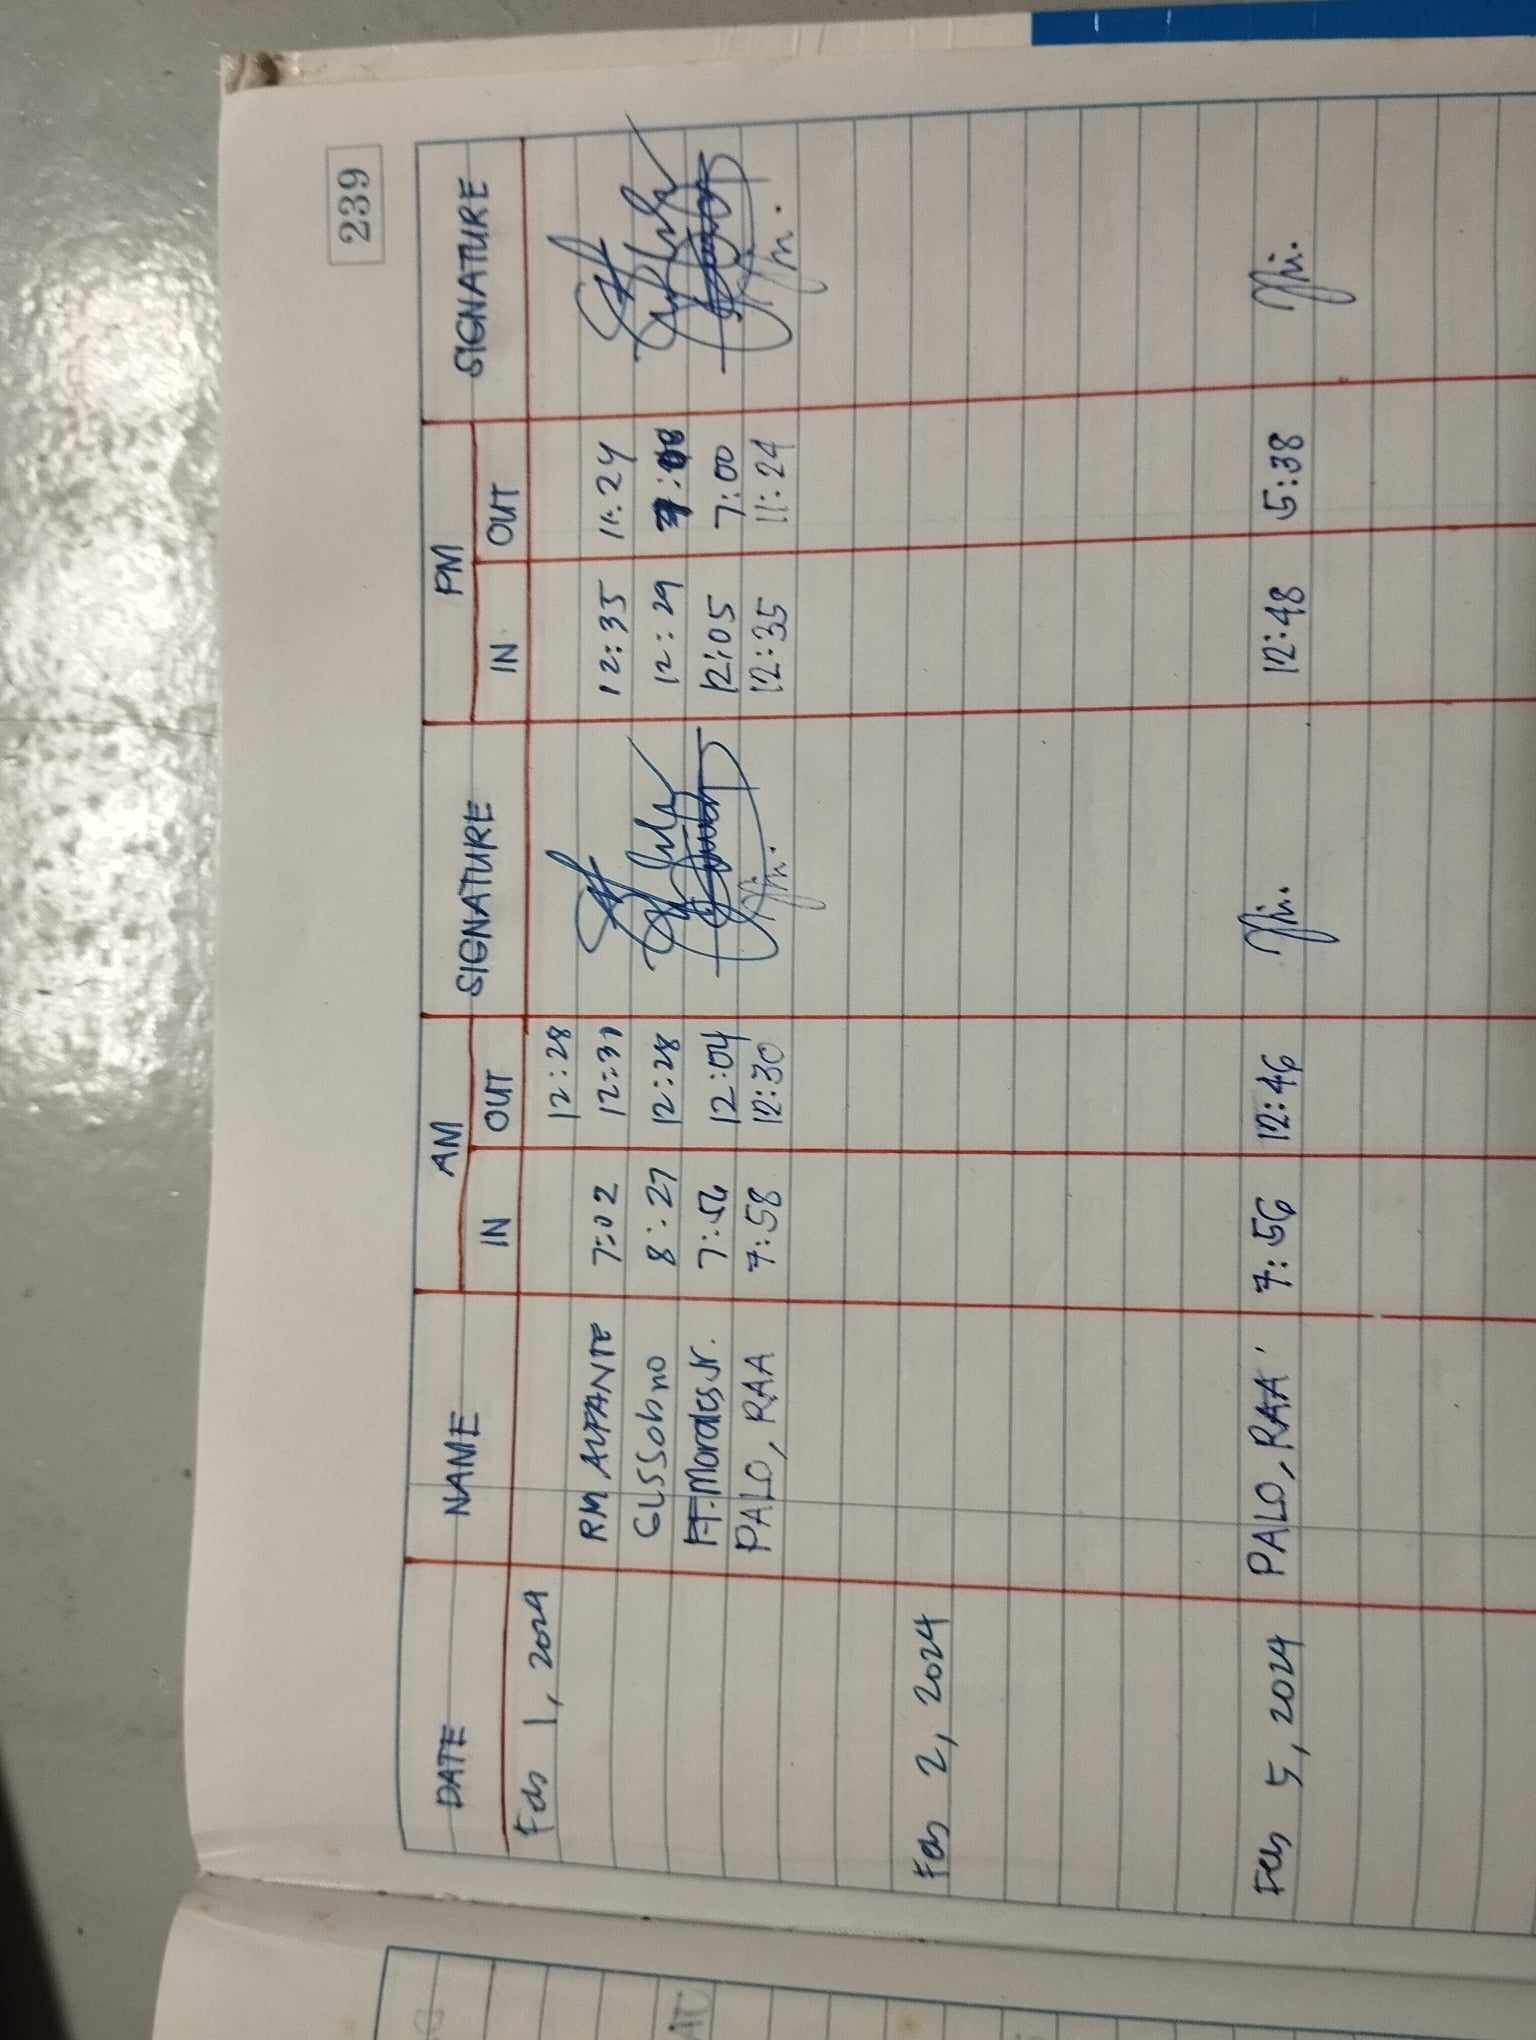 239
DATE NAME AM SIGNATURE PM SIGNATURE
IN OUT IN OUT
Feb 1, 2024 12:28
RM ALIPANTE 7:02 12:31 12:35 11:24
8:27 12:28 12:29
FT. Morales Jr. 7:56 12:04 12:05 7:00
PALO, RAA 7:58 12:30 12:35 11:24
Feb 2, 2024
Feb 5, 2024 PALO, RAA 7:56 12:46 12:48 5:38